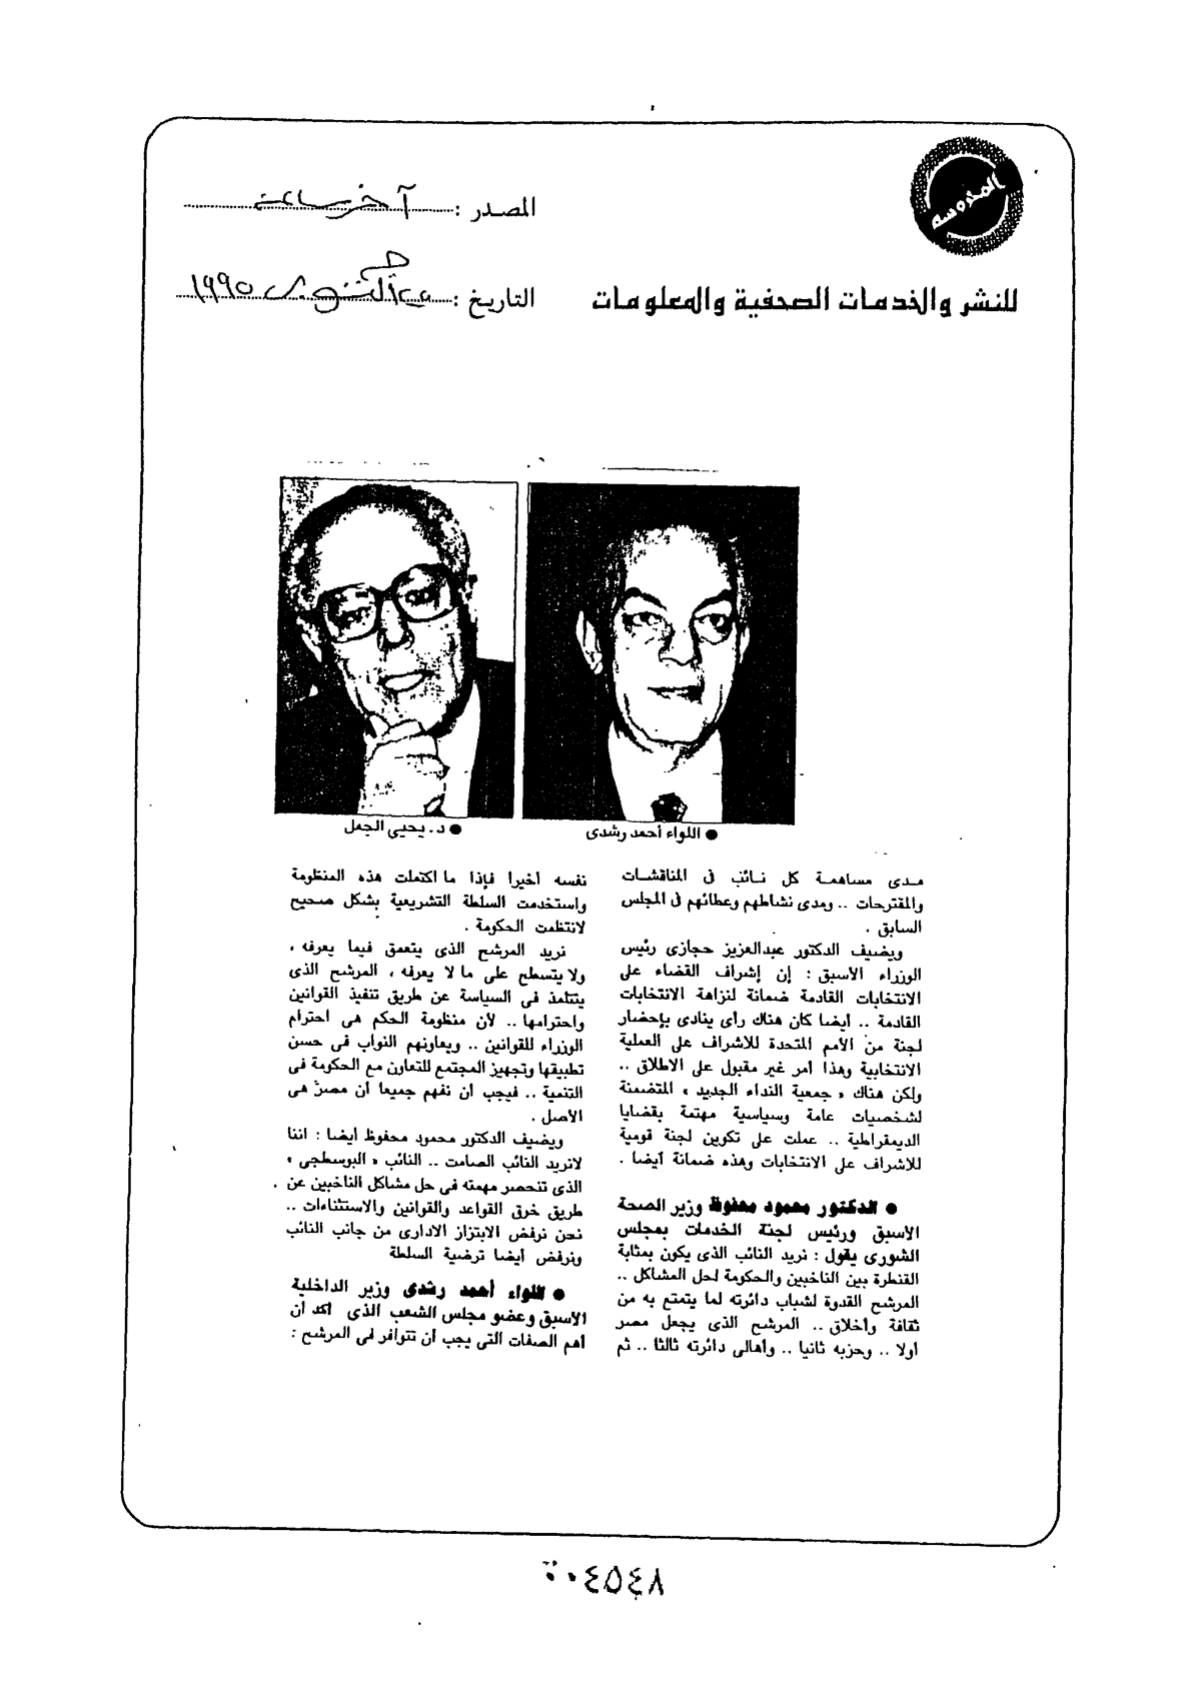 المحروسة
المصدر : آخر ساعة
للنشر والخدمات الصحفية والمعلومات
التاريخ : ١٩٩٥
● اللواء أحمد رشدى
● د. يحيى الجمل
مدى مساهمة كل نائب فى المناقشات
والمقترحات .. ومدى نشاطهم وعطائهم فى المجلس
السابق .
ويضيف الدكتور عبدالعزيز حجازى رئيس
الوزراء الأسبق : إن إشراف القضاء على
الانتخابات القادمة ضمانة لنزاهة الانتخابات
القادمة .. أيضا كان هناك رأى ينادى بإحضار
لجنة من الأمم المتحدة للاشراف على العملية
الانتخابية وهذا أمر غير مقبول على الاطلاق ..
ولكن هناك « جمعية النداء الجديد » المتضمنة
لشخصيات عامة وسياسية مهتمة بقضايا
الديمقراطية .. عملت على تكوين لجنة قومية
للاشراف على الانتخابات وهذه ضمانة أيضا .
● الدكتور محمود محفوظ وزير الصحة
الأسبق ورئيس لجنة الخدمات بمجلس
الشورى يقول : نريد النائب الذى يكون بمثابة
القنطرة بين الناخبين والحكومة لحل المشاكل ..
المرشح القدوة لشباب دائرته لما يتمتع به من
ثقافة وأخلاق .. المرشح الذى يجعل مصر
أولا .. وحزبه ثانيا .. وأهالى دائرته ثالثا .. ثم
نفسه أخيرا فإذا ما اكتملت هذه المنظومة
واستخدمت السلطة التشريعية بشكل صحيح
لانتظمت الحكومة .
نريد المرشح الذى يتعمق فيما يعرفه ،
ولا يتسطح على ما لا يعرفه ، المرشح الذى
يتتلمذ فى السياسة عن طريق تنفيذ القوانين
واحترامها .. لأن منظومة الحكم هى احترام
الوزراء للقوانين .. ويعاونهم النواب فى حسن
تطبيقها وتجهيز المجتمع للتعاون مع الحكومة فى
التنمية .. فيجب أن نفهم جميعا أن مصر هى
الأصل .
ويضيف الدكتور محمود محفوظ أيضا : اننا
لانريد النائب الصامت .. النائب « البوسطجى »
الذى تنحصر مهمته فى حل مشاكل الناخبين عن
طريق خرق القواعد والقوانين والاستثناءات ..
نحن نرفض الابتزاز الادارى من جانب النائب
ونرفض أيضا ترضية السلطة
● اللواء أحمد رشدى وزير الداخلية
الأسبق وعضو مجلس الشعب الذى أكد أن
أهم الصفات التى يجب أن تتوافر فى المرشح :
٠٤٥٤٨